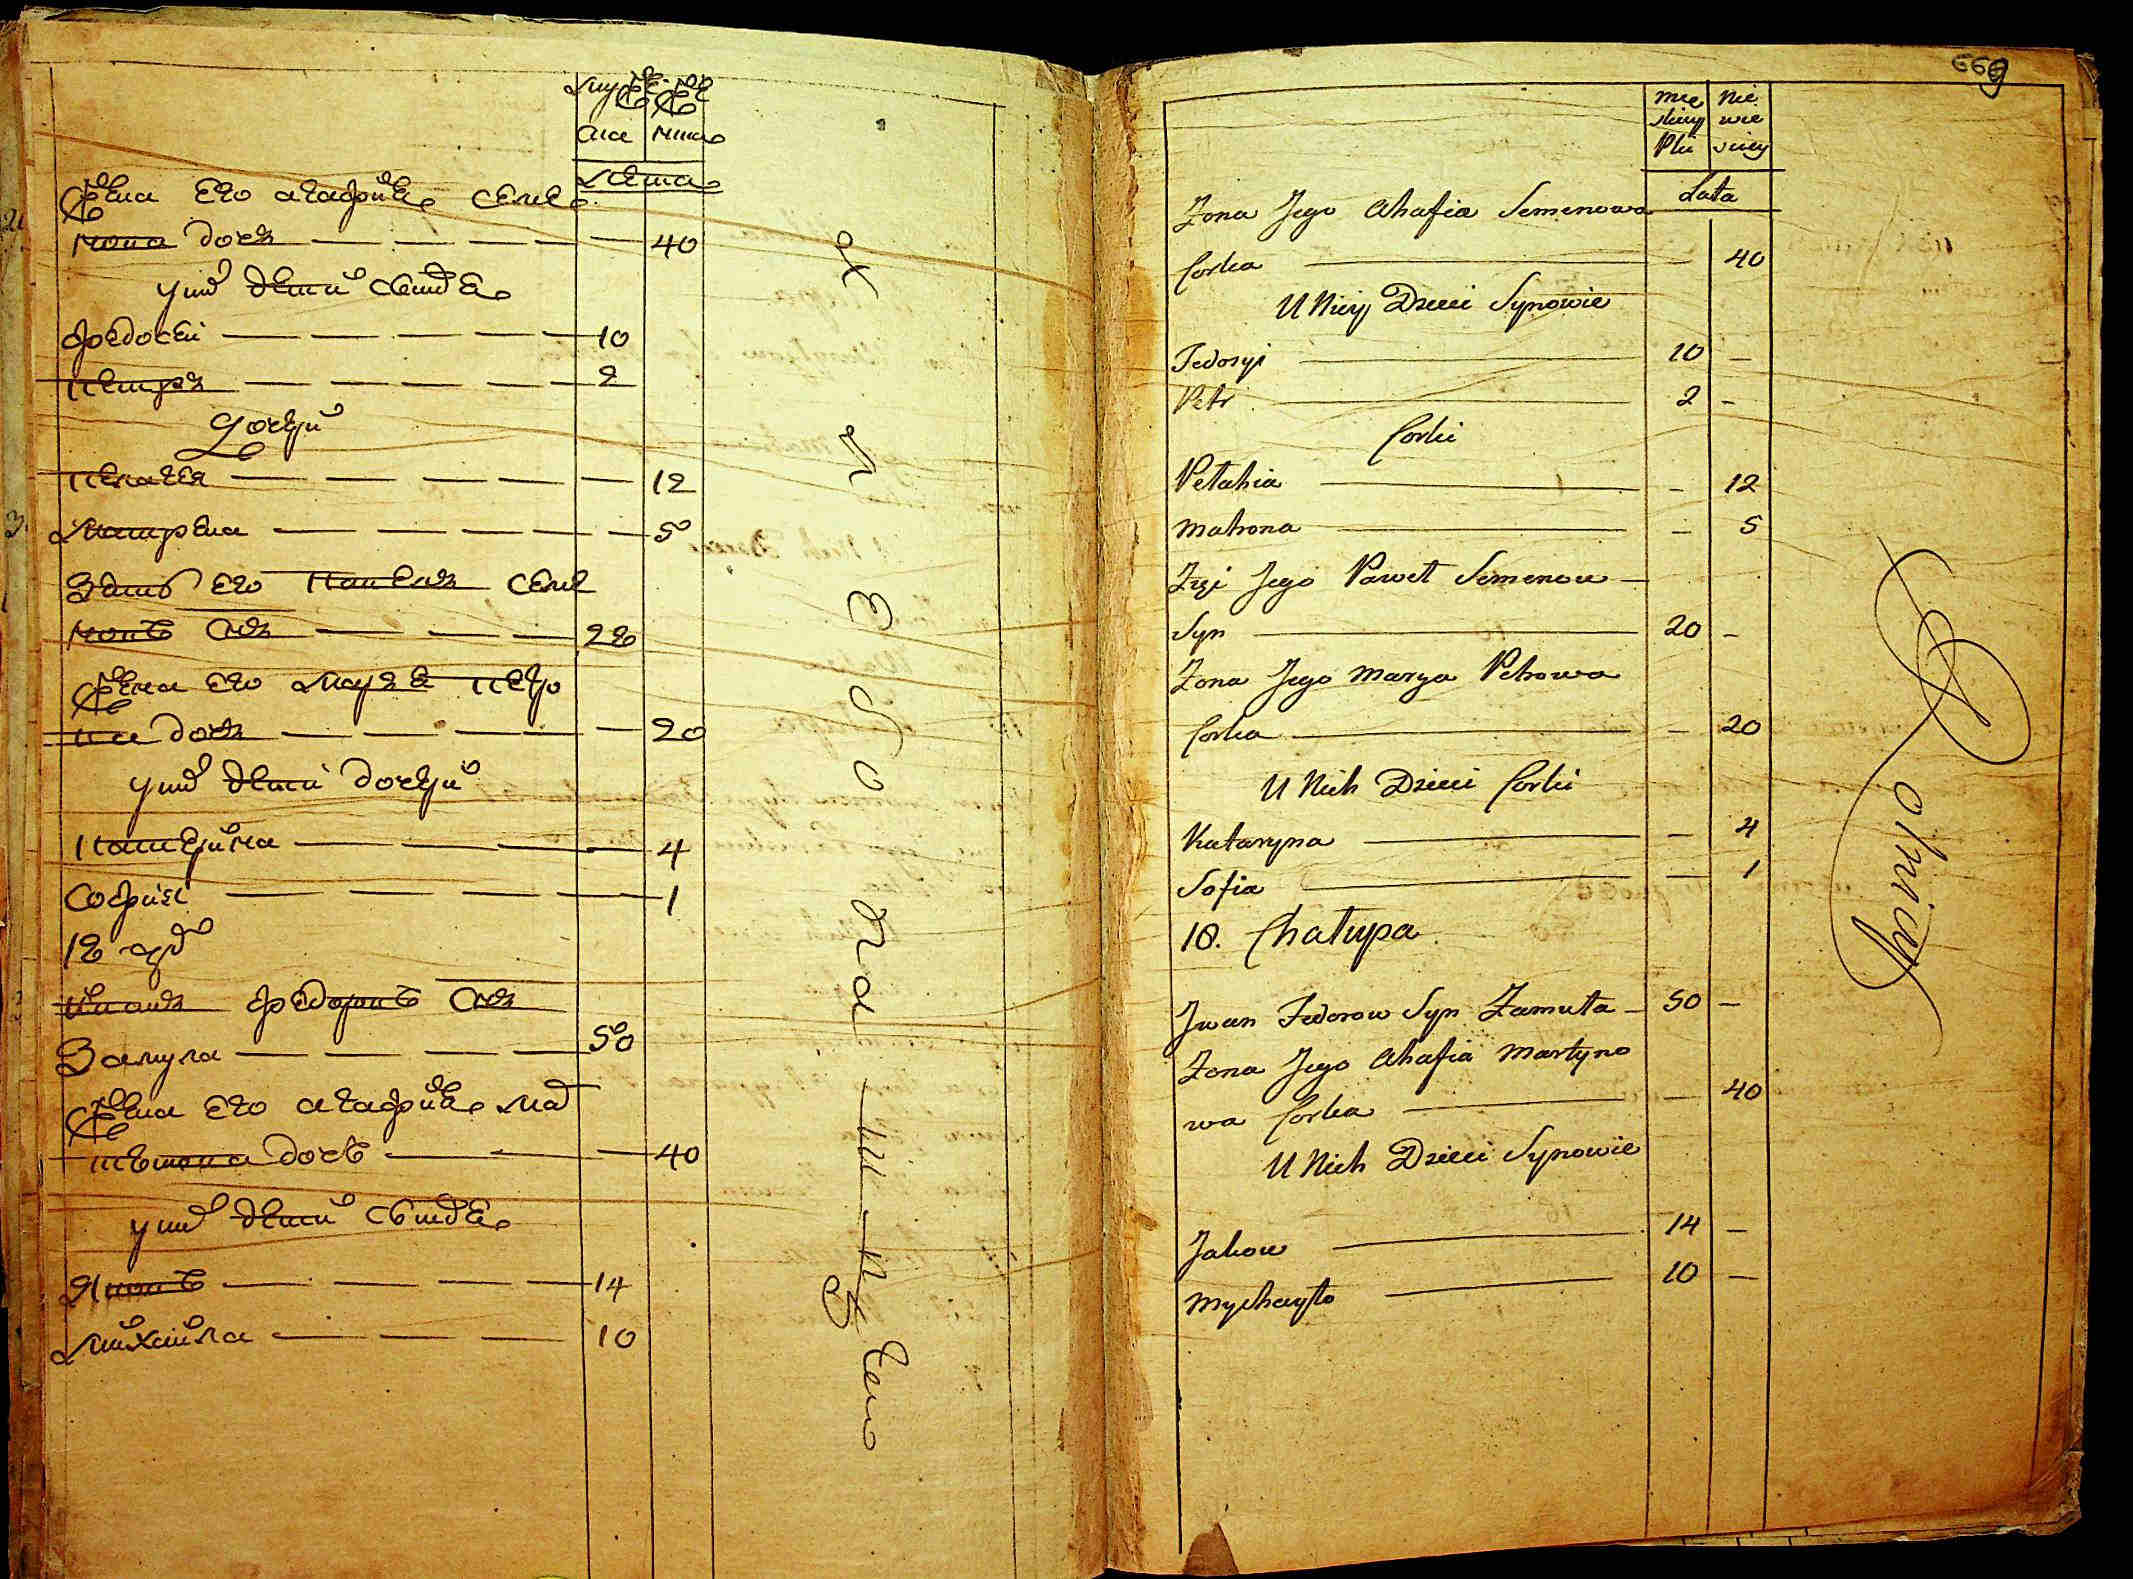 лѣта
жена его агафия семе
нова дочъ 40
у них дети сыновя
федосей 10
петръ 2
дочери
пелагея 12
матрена 5
Зять его павелъ семе
новъ сын
жена его маря петро
ва дочъ 20
у них дети дочери
катерина 4
софия 1
18
иванъ федоровъ сынъ
Замула 50
жена его агафия мар
тынова дочь 40
у них дети сыновя
Яковъ 14
михаила 10
669
Męs Nie
Płci wie
Lata
Zona Jego Ahafia Semenowa
Corka 40
U Niey Dzieci Synowie
Fedosyi 10 —
Petr 2 —
Corki
Pelahia — 12
Matrona — 5
Zięć Jego Paweł Semenow
Syn 20 —
Zona Jego Marya Petrowa
Corka — 20
U Nich Dzieci Corki
Kataryna — 4
Sofia — 1
18. Chałupa
Jwan Fedorow Syn Zamuła 50 —
Zona Jego Ahafia Martyno
wa Corka — 40
U Nich Dzieci Synowie
Jakow 14 —
Mychayło 10 —